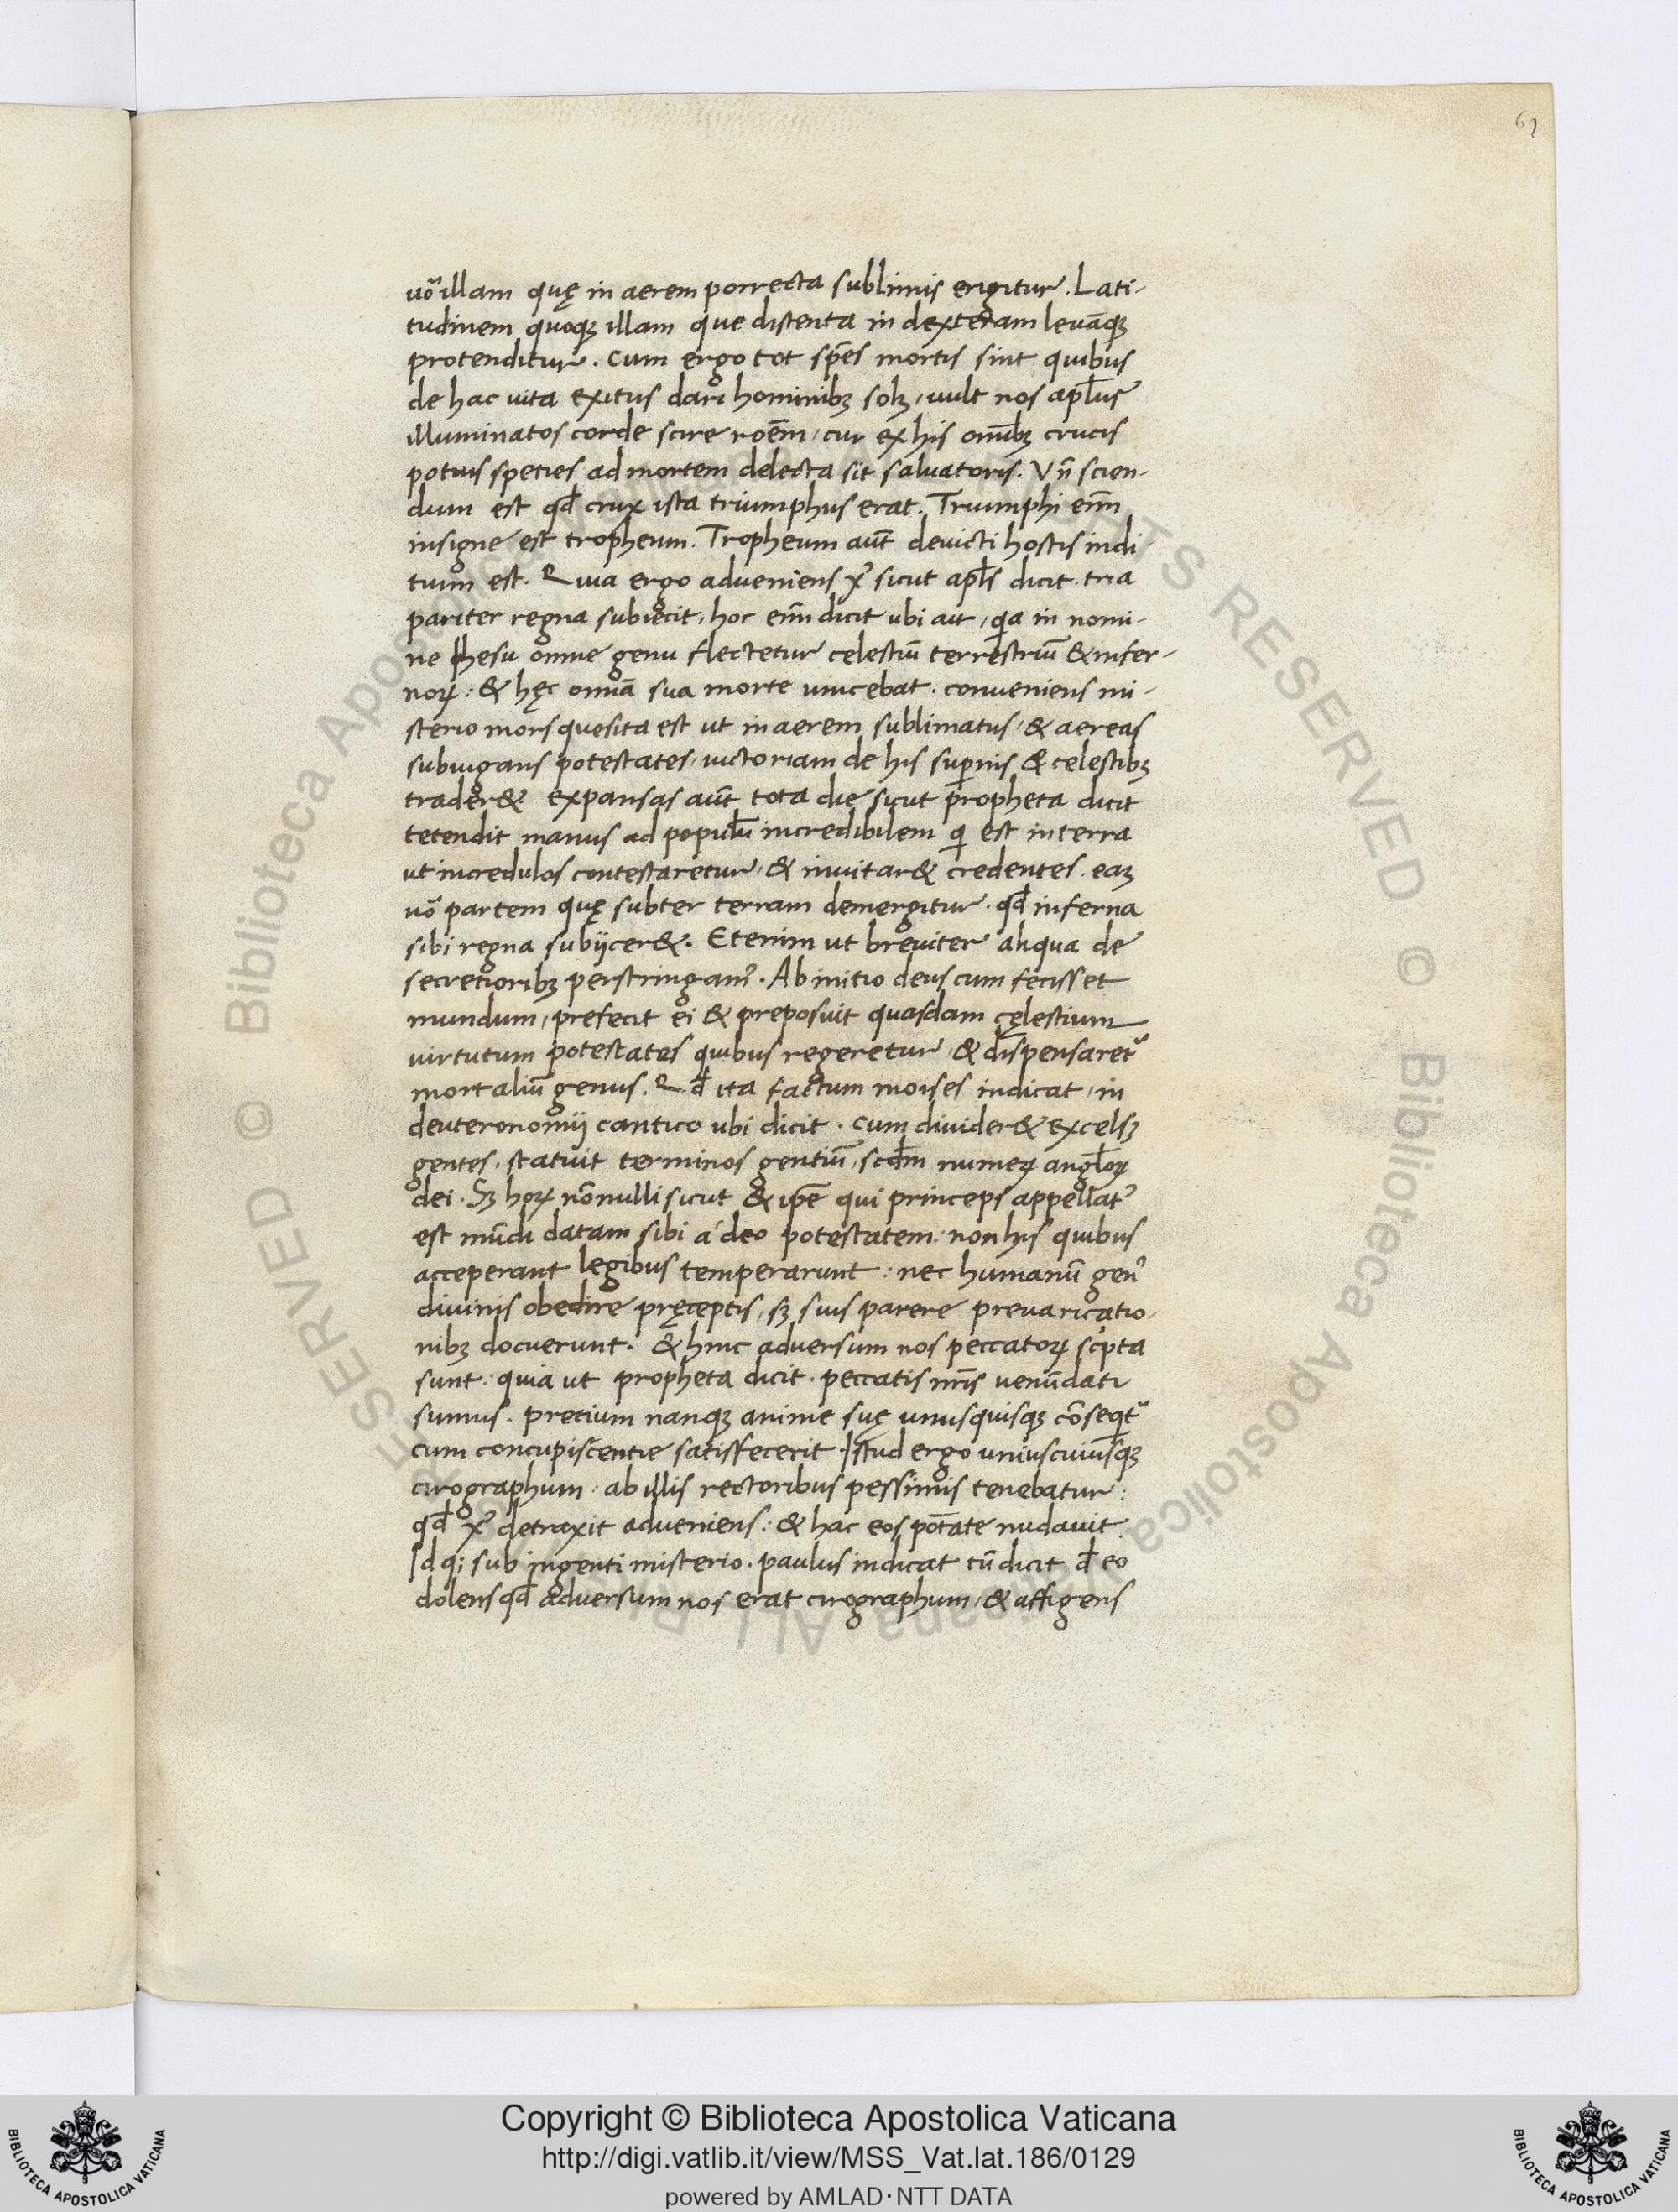 61
uō illam quę in aerem porrecta sublimis erigitur. Lati-
tudinem quoqꝫ illam que distenta in dexteram leuāqꝫ
protenditur. Cum ergo tot sp̄es mortis sint quibus
de hac uita exitus dari hominibꝫ solꝫ, uult nos apl̄us
illuminatos corde scire roēm, cur ex his omībꝫ crucis
potius species ad mortem delecta sit saluatoris. Vn̄ scien-
dum est qđ crux ista triumphus erat. Triumphi eīm
insigne est tropheum. Tropheum aūt deuicti hostis indi
tium est. Quia ergo adueniens xꝰ sicut apl̄s dicit. tria
pariter regna subiecit, hoc eīm dicit ubi ait, qa in nomi-
ne Ihesu omne genu flectetur celestiū terrestriū & infer-
noꝝ: & hęc omīa sua morte uincebat. conueniens mi-
sterio mors quesita est ut in aerem sublimatus, & aereas
subiugans potestates, uictoriam de his sup̄nis & celestibꝫ
trader&. expansas aūt tota die sicut propheta dicit
tetendit manus ad populū incredibilem q est in terra
ut incredulos contestaretur, & inuitar& credentes. eaꝫ
uō partem quę subter terram demergitur. qđ inferna
sibi regna subijcer&. Etenim ut breuiter aliqua de
secretioribꝫ perstringamꝰ. Ab initio deus cum fecisset
mundum, prefecit ei & preposuit quasdam cęlestium
uirtutum potestates quibus regeretur, & dispensaretᷣ
mortaliū genus. Qđ ita factum moises indicat, in
deuteronomij cantico ubi dicit. Cum diuider& excelsꝫ
gentes. statuit terminos gentiū, scđm numeꝝ angl̄oꝝ
dei. Sꝫ hoꝝ nōnulli sicut & ip̄e qui princeps appellatᷣ
est mūdi datam sibi a deo potestatem: non his quibus
acceperant legibus temperarunt: nec humanū genꝰ
diuinis obedire pręceptis, sꝫ suis parere preuaricatio-
nibꝫ docuerunt. & hinc aduersum nos peccatoꝝ sc̓pta
sunt: quia ut propheta dicit. peccatis nr̄is uenūdati
sumus. pretium nanqꝫ anime suę unusquisqꝫ cōseqtᷣ
cum concupiscentie satisfecerit. Istud ergo uniuscuiusqꝫ
cirographum: ab illis rectoribus pessimis tenebatur:
qđ xꝰ detraxit adueniens: & hac eos potāte nudauit.
Id q; sub ingenti misterio. paulus indicat cū dicit đ eo
dolens qđ aduersum nos erat cirographum, & affigens
© Biblioteca Apostolica Vaticana ALL RIGHTS RESERVED
Copyright © Biblioteca Apostolica Vaticana
http://digi.vatlib.it/view/MSS_Vat.lat.186/0129
powered by AMLAD·NTT DATA
BIBLIOTECA APOSTOLICA VATICANA
BIBLIOTECA APOSTOLICA VATICANA